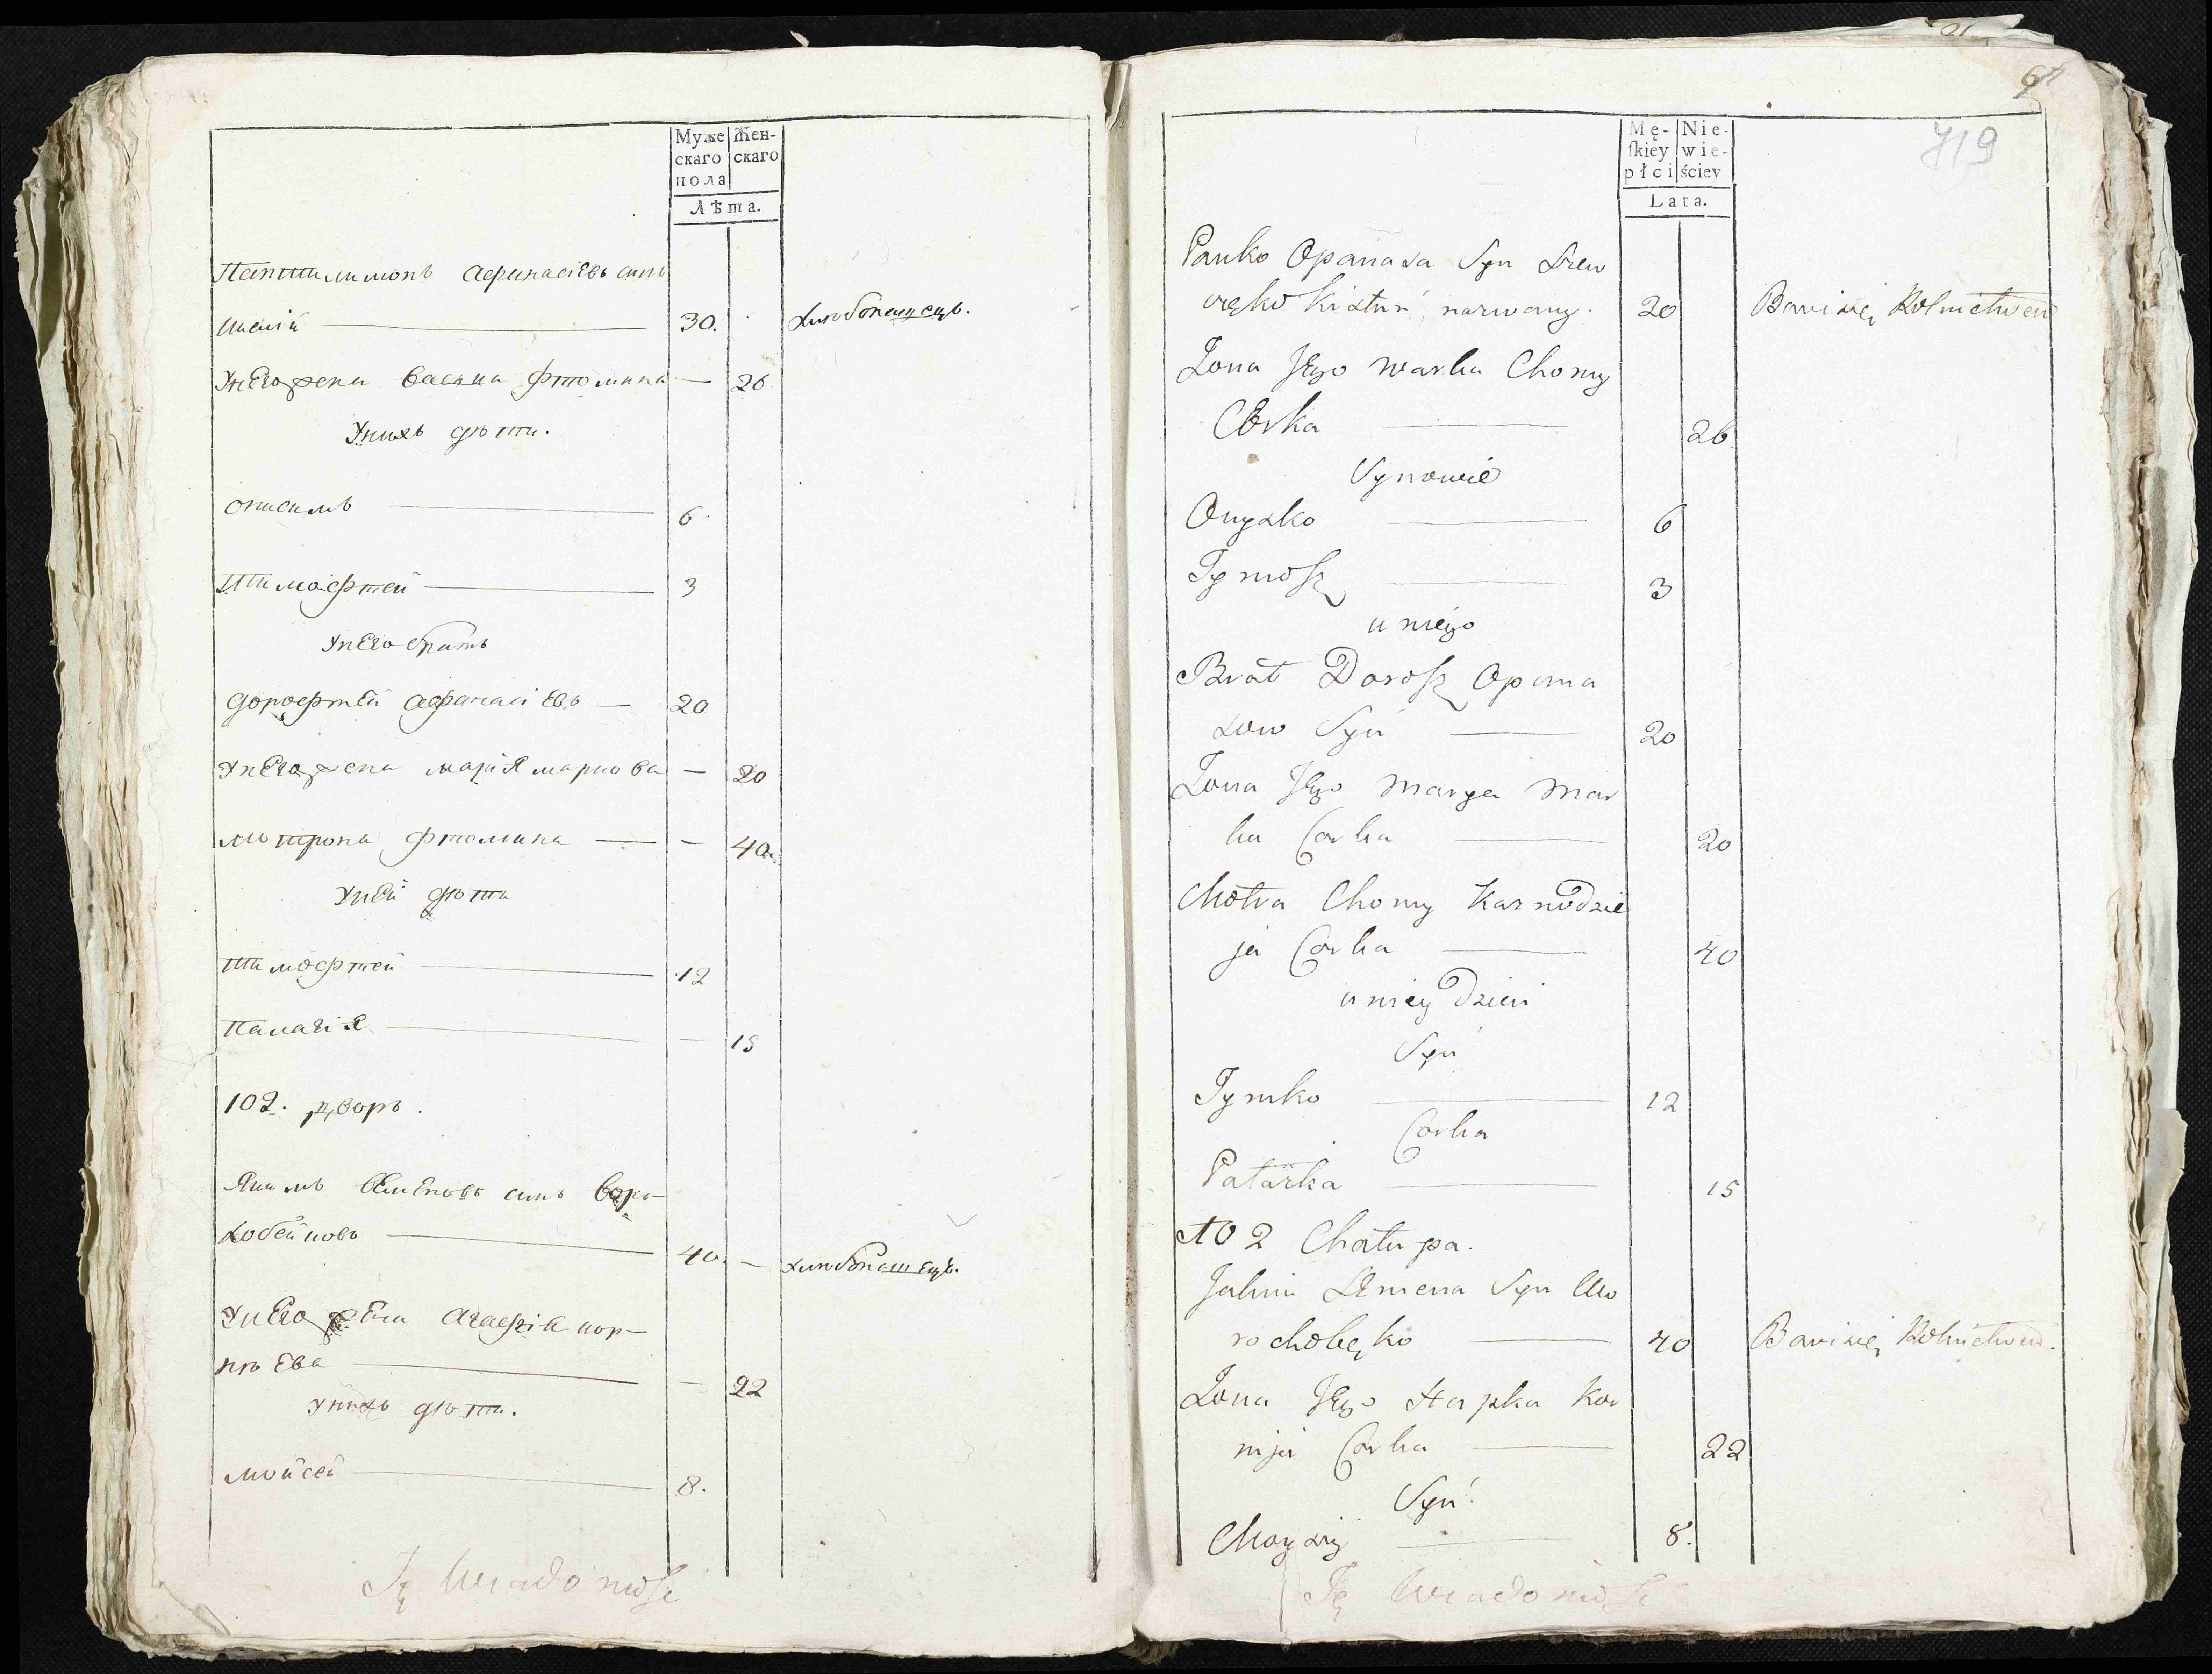 Муже Жен-
скаго скаго
пола
Лѣта.
Пантилимонъ афанасіевъ синъ
30. хлѣбопашецъ.
унего жена васина фтомина — 26
унихъ дѣти.
онисимъ 6.
тимофтей 3
унего братъ
дорофтей афанасіевъ — 20
унего жена марія маркова — 20
мотрона фтомина — — 40.
уней дѣти
тимофтей 12
палагія — 15
102. дворъ.
Якимъ семеновъ синъ воро-
хобейновъ 40. — хлѣбопашецъ.
унего жена агафія кор-
нѣева — 22
унихъ дѣти.
мойсей 8.
Tę Wiadomość
67
719
Mę- Nie-
ſkiey wie-
płci ściey
Lata.
Panko Opanasa Syn
nazwany. 20 Bawi się Rolnictwem
Żona Jego Warka Chomy
Córka 26
Synowie
Onyzko 6
Tymosz 3
u niego
Brat Dorosz Opana
zow Syn 20
Żona Jego Marya Mar
ka Corka 20
Motra Chomy Kaznodzie
ja Corka 40
u niey Dzieci
Syn
Tymko 12
Corka
Palażka 15
102 Chałupa.
Jakim Semena Syn Wo
rochobęko 40 Bawi się Rolnictwem.
Żona Jego Hapka Kor
nija Corka 22
Syn
Moyziy 8.
Tę Wiadomość